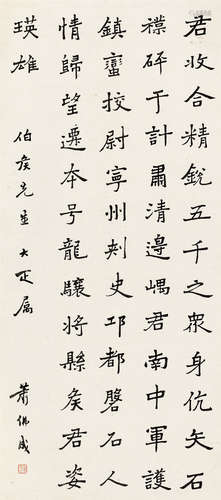 君收合精銳五千之眾身伉矢石
襟砰于計肅清邊嵎君南中軍護
鎮蠻挍尉寧州刾史邛都磬石人
情歸望遷本号龍驤將縣矦君姿
瑛雄
伯矦先生大疋屬
蕭佛成